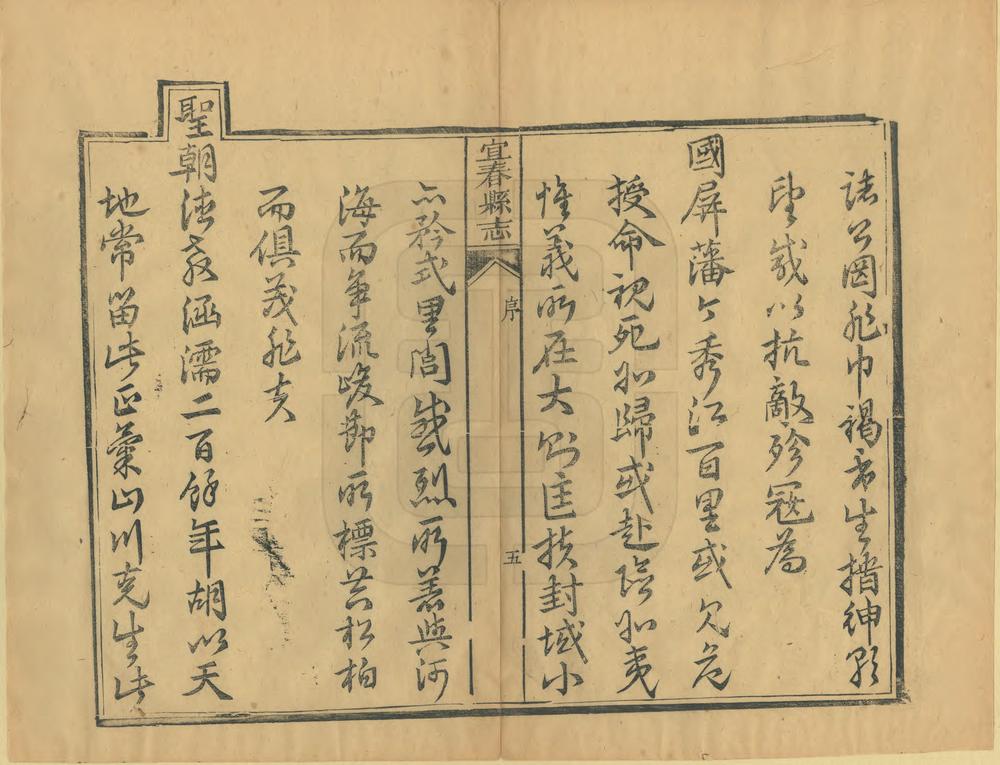 諸公囚服巾褐書生搢紳顯
望咸以抗敵殄冦為
國屏藩今秀江百里或見危
授命視死如歸或赴險如夷
惟義所在大則匡扶封域小
宜春縣志
序
五
亦矜式里閭盛烈所著與河
海而爭流峻節所標共松柏
而俱茂非夫
聖朝德教涵濡二百餘年胡以天
地常留此正氣山川克生此